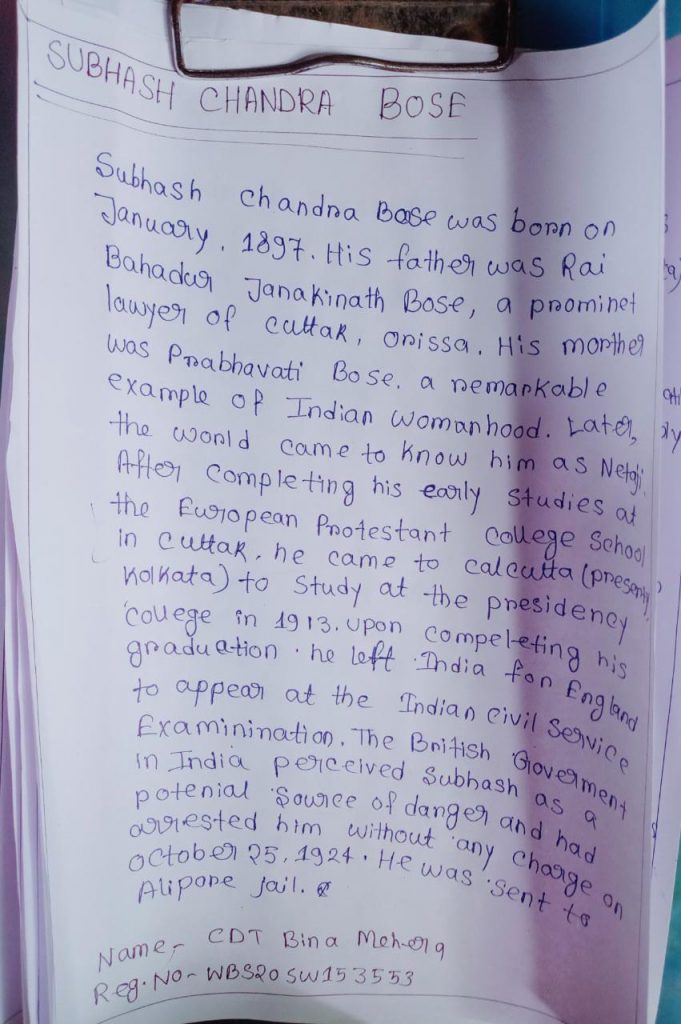 SUBHASH CHANDRA BOSE
Subhash Chandra Bose was born on
January, 1897. His father was Rai
Bahadur Janakinath Bose, a prominet
lawyer of cuttak, orissa. His morther
was Prabhavati Bose. a remarkable
example of Indian womanhood. Later,
the world came to know him as Netaji.
After completing his early studies at
the European Protestant college School
in cuttak, he came to calcutta (presenty
Kolkata) to study at the presidency
college in 1913. upon compeleting his
graduation. he left India for England
to appear at the Indian civil service
Examinination. The British Goverment
in India perceived Subhash as a
potenial source of danger and had
arrested him without any charge on
october 25, 1924. He was sent to
Alipore jail.
Name - CDT Bina Mehera
Reg. No - WBS20SW153553